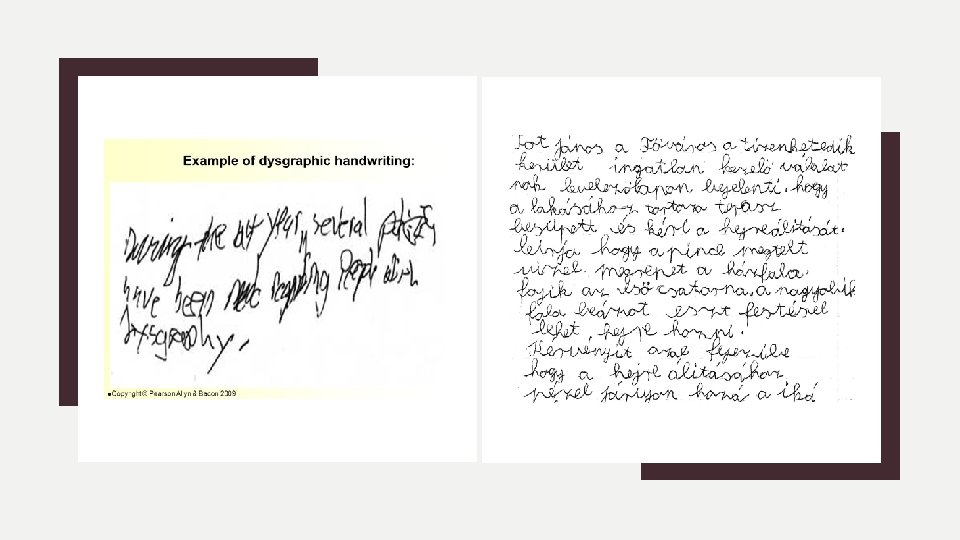 Example of dysgraphic handwriting:
During the last years, several
have been regarding people with
dysgraphy.
•Copyright © Pearson Allyn & Bacon 2009
Tot János a Főváros a tizenhetedik
kerület ingatlan kezelő válalat
nak levelezőlapon bejelenti, hogy
a lakásához tartozo terasz
besüpett és kéri a hejreálítását.
leírja hogy a pince megtelt
vizel. megrepet a házfala.
fojik az eső csatorna. a nagyobik
fala beázot eszt festésel
lehet hejre hozni.
Kérvényit azal fejezi be
hogy a hejre álításához
pézel járúljon hozzá a ikó